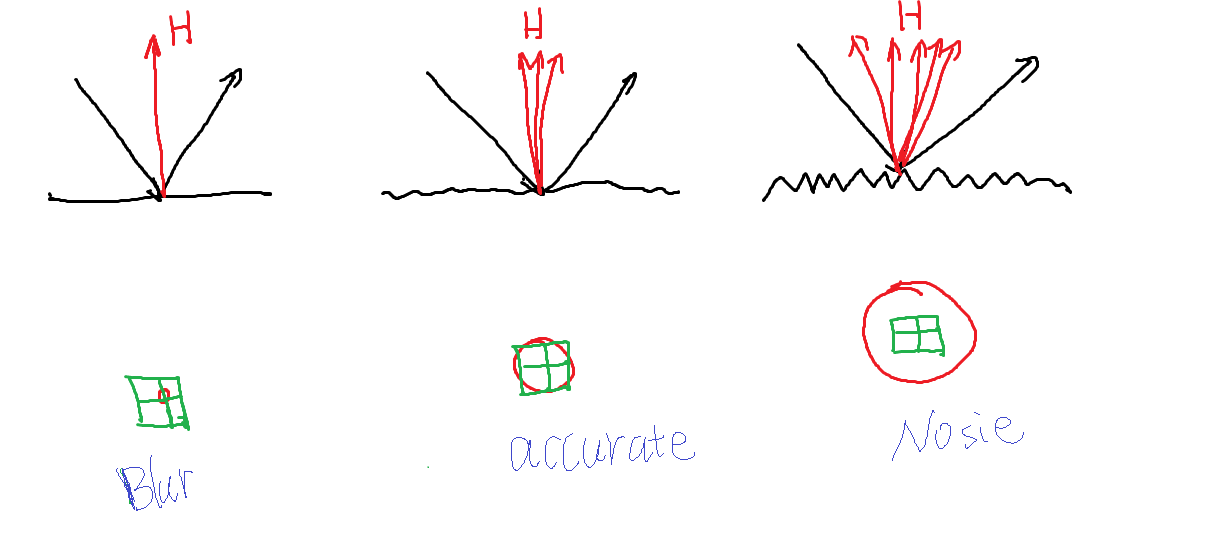 H
H
H
Blur
accurate
Nosie